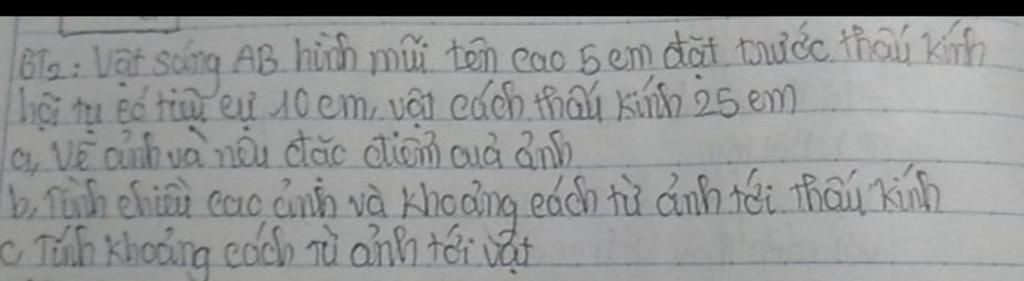 BT2: Vật sáng AB hình mũi tên cao 5 cm đặt trước thấu kính
hội tụ có tiêu cự 10 cm, vật cách thấu kính 25 cm
a, Vẽ ảnh và nêu đặc điểm của ảnh
b, Tính chiều cao ảnh và khoảng cách từ ảnh tới thấu kính
c, Tính khoảng cách từ ảnh tới vật